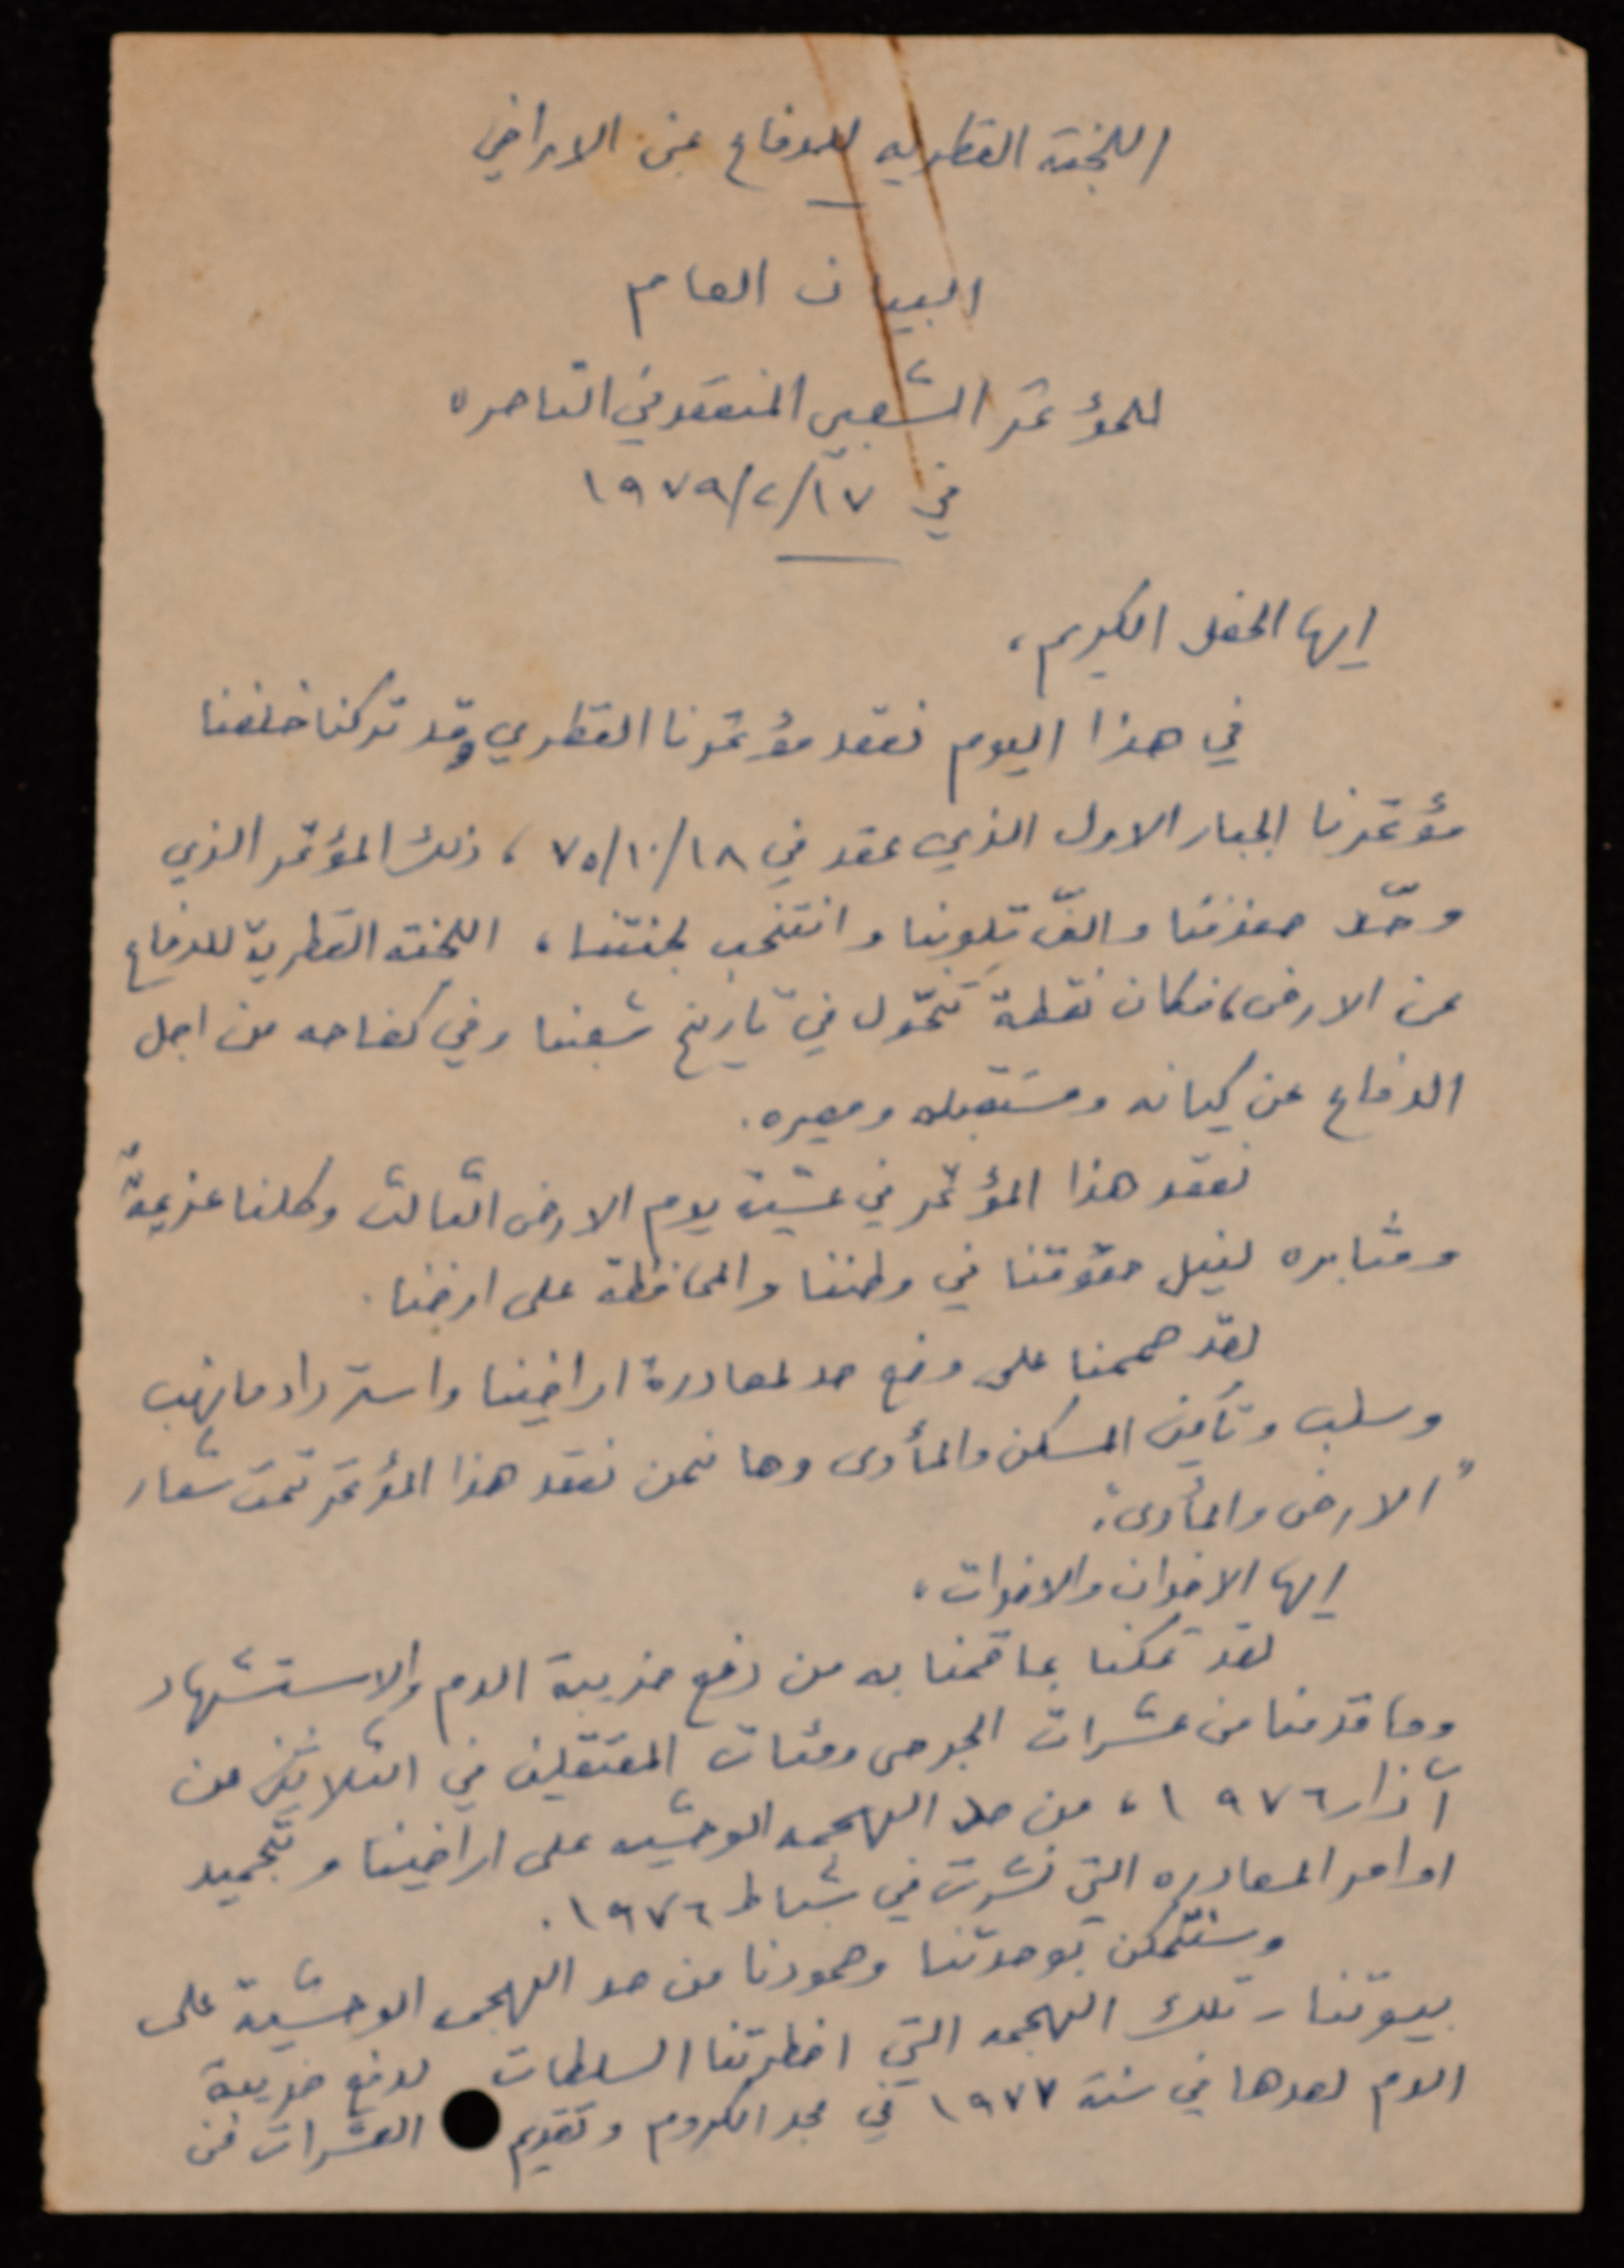 اللجنة القطريه للدفاع عن الاراضي
البيان العام
للمؤتمر الشعبي المنعقد في الناصره
في ١٩٧٩/٢/١٧
ايها الحفل الكريم،
في هذا اليوم نعقد مؤتمرنا القطري وقد تركنا خلفنا
مؤتمرنا الجبار الاول الذي عقد في ٧٥/١٠/١٨، ذلك المؤتمر الذي
وحّد صفوفنا والفّ قلوبنا وانتخب لجنتنا، اللجنة القطرية للدفاع
عن الارض، فكان نقطة تحّول في تاريخ شعبنا وفي كفاحه من اجل
الدفاع عن كيانه ومستقبله ومصيره.
نعقد هذا المؤتمر في عشية يوم الارض الثالث وكلنا عزيمةٌ
ومثابره لنيل حقوقنا في وطننا والمحافظة على ارضنا.
لقد صممنا على وضع حد لمصادرة اراضينا واسترداد ما نهب
وسلب وتأمين المسكن والمأوى وها نحن نعقد هذا المؤتمر تحت شعار
"الارض والمأوى".
ايها الاخوان والاخوات،
لقد تمكنا بما قمنا به من دفع ضريبة الدم والاستشهاد
وما قدمنا من عشرات الجرحى ومئات المعتقلين في الثلاثين من
آذار ١٩٧٦، من صد الهجمه الوحشيه على اراضينا وتجميد
اوامر المصادره التي نشرت في شباط ١٩٧٦.
وسنتمكن بوحدتنا وصمودنا من صد الهجمه الوحشية على
بيوتنا - تلك الهجمه التي اضطرتنا السلطات لدفع ضريبة
الدم لصدها في سنة ١٩٧٧ في مجد الكروم وتقديم العشرات من